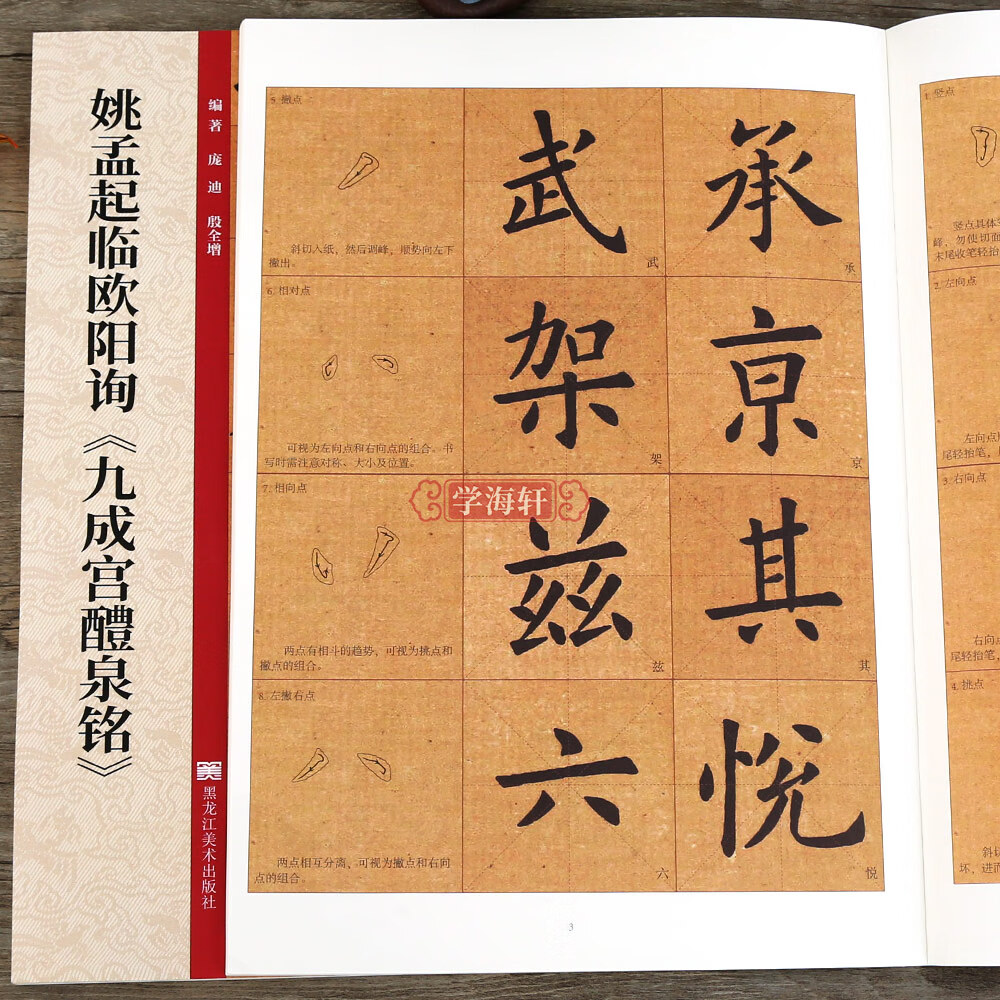 姚孟起临欧阳询《九成宫醴泉铭》
编著 庞迪 殷全增
黑龙江美术出版社
5. 撇点
斜切入纸，然后调峰，顺势向左下
撇出。
武
武
承
承
6. 相对点
可视为左向点和右向点的组合。书
写时需注意对称、大小及位置。
架
架
京
京
7. 相向点
两点有相斗的趋势，可视为挑点和
撇点的组合。
兹
兹
其
其
8. 左撇右点
两点相互分离，可视为撇点和右向
点的组合。
六
六
悦
悦
学海轩
3
1. 竖点
竖点具体
峰，勿使切面
末尾收笔轻抬
2. 左向点
左向点
尾轻抬笔，
3. 右向点
右向点
尾轻抬笔，
4. 挑点
斜切
坏，进而